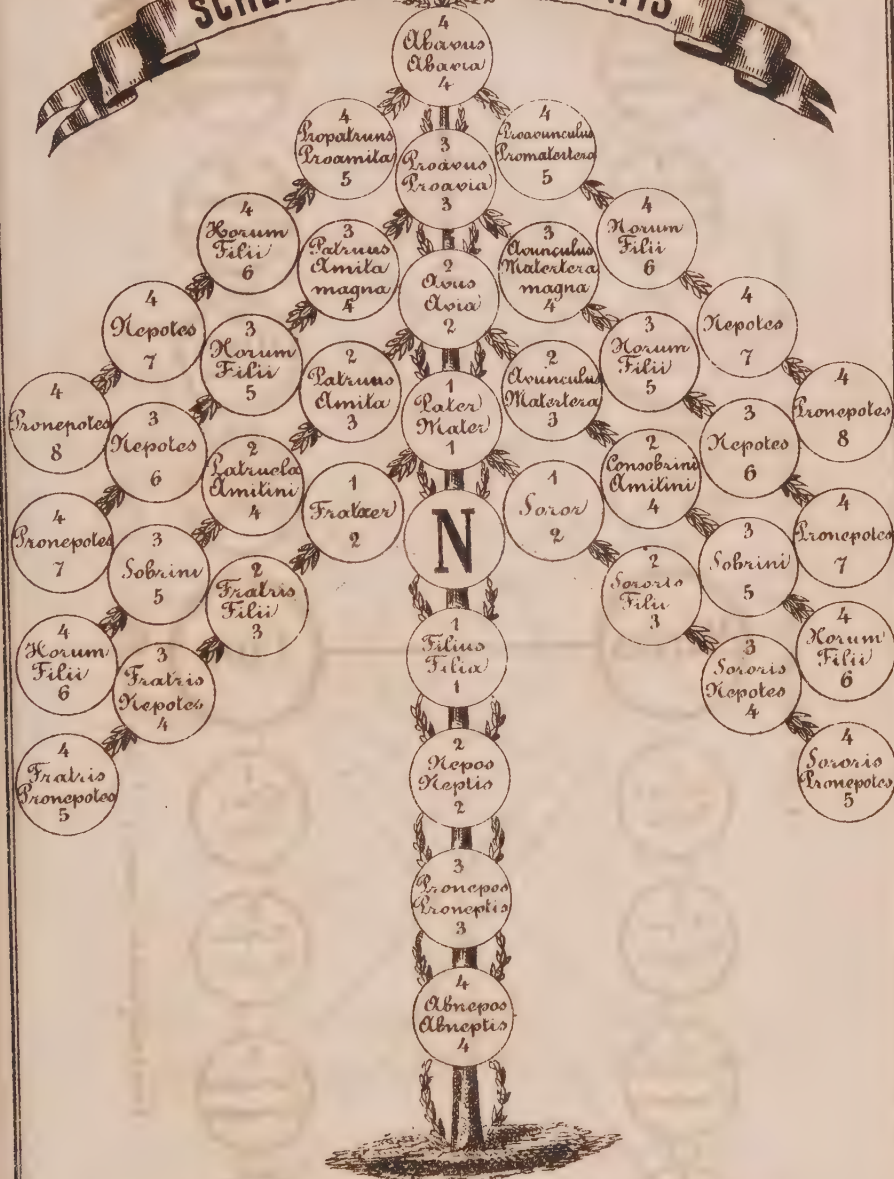 4
Abavus
Abavia
4
4
Propatruus
Proamita
5
3
Proavus
Proavia
3
4
Proavunculus
Promatertera
5
4
Horum
Filii
6
3
Patruus
Amita
magna
4
2
Avus
Avia
2
3
Avunculus
Matertera
magna
4
4
Horum
Filii
6
4
Nepotes
7
3
Horum
Filii
5
2
Patruus
Amita
3
1
Pater
Mater
1
2
Avunculu
Matertera
3
3
Horum
Filii
5
4
Nepotes
7
4
Pronepotes
8
3
Nepotes
6
2
Patruela
Amitini
4
1
2
N
1
Soror
2
2
Consobrini
Amitini
4
3
Nepotes
6
4
Pronepotes
8
4
Pronepotes
7
3
Sobrini
5
2
Fratris
Filii
3
2
Sororis
Filii
3
3
Sobrini
5
4
Pronepotes
7
4
Horum
Filii
6
3
Fratris
Nepotes
4
1
Filius
Filia
1
3
Sororis
Nepotes
4
4
Horum
Filii
6
4
Fratris
Pronepotes
5
2
Nepos
Neptis
2
4
Sororis
Pronepotes
5
3
Pronepos
Proneptis
3
4
Abnepos
Abneptis
4